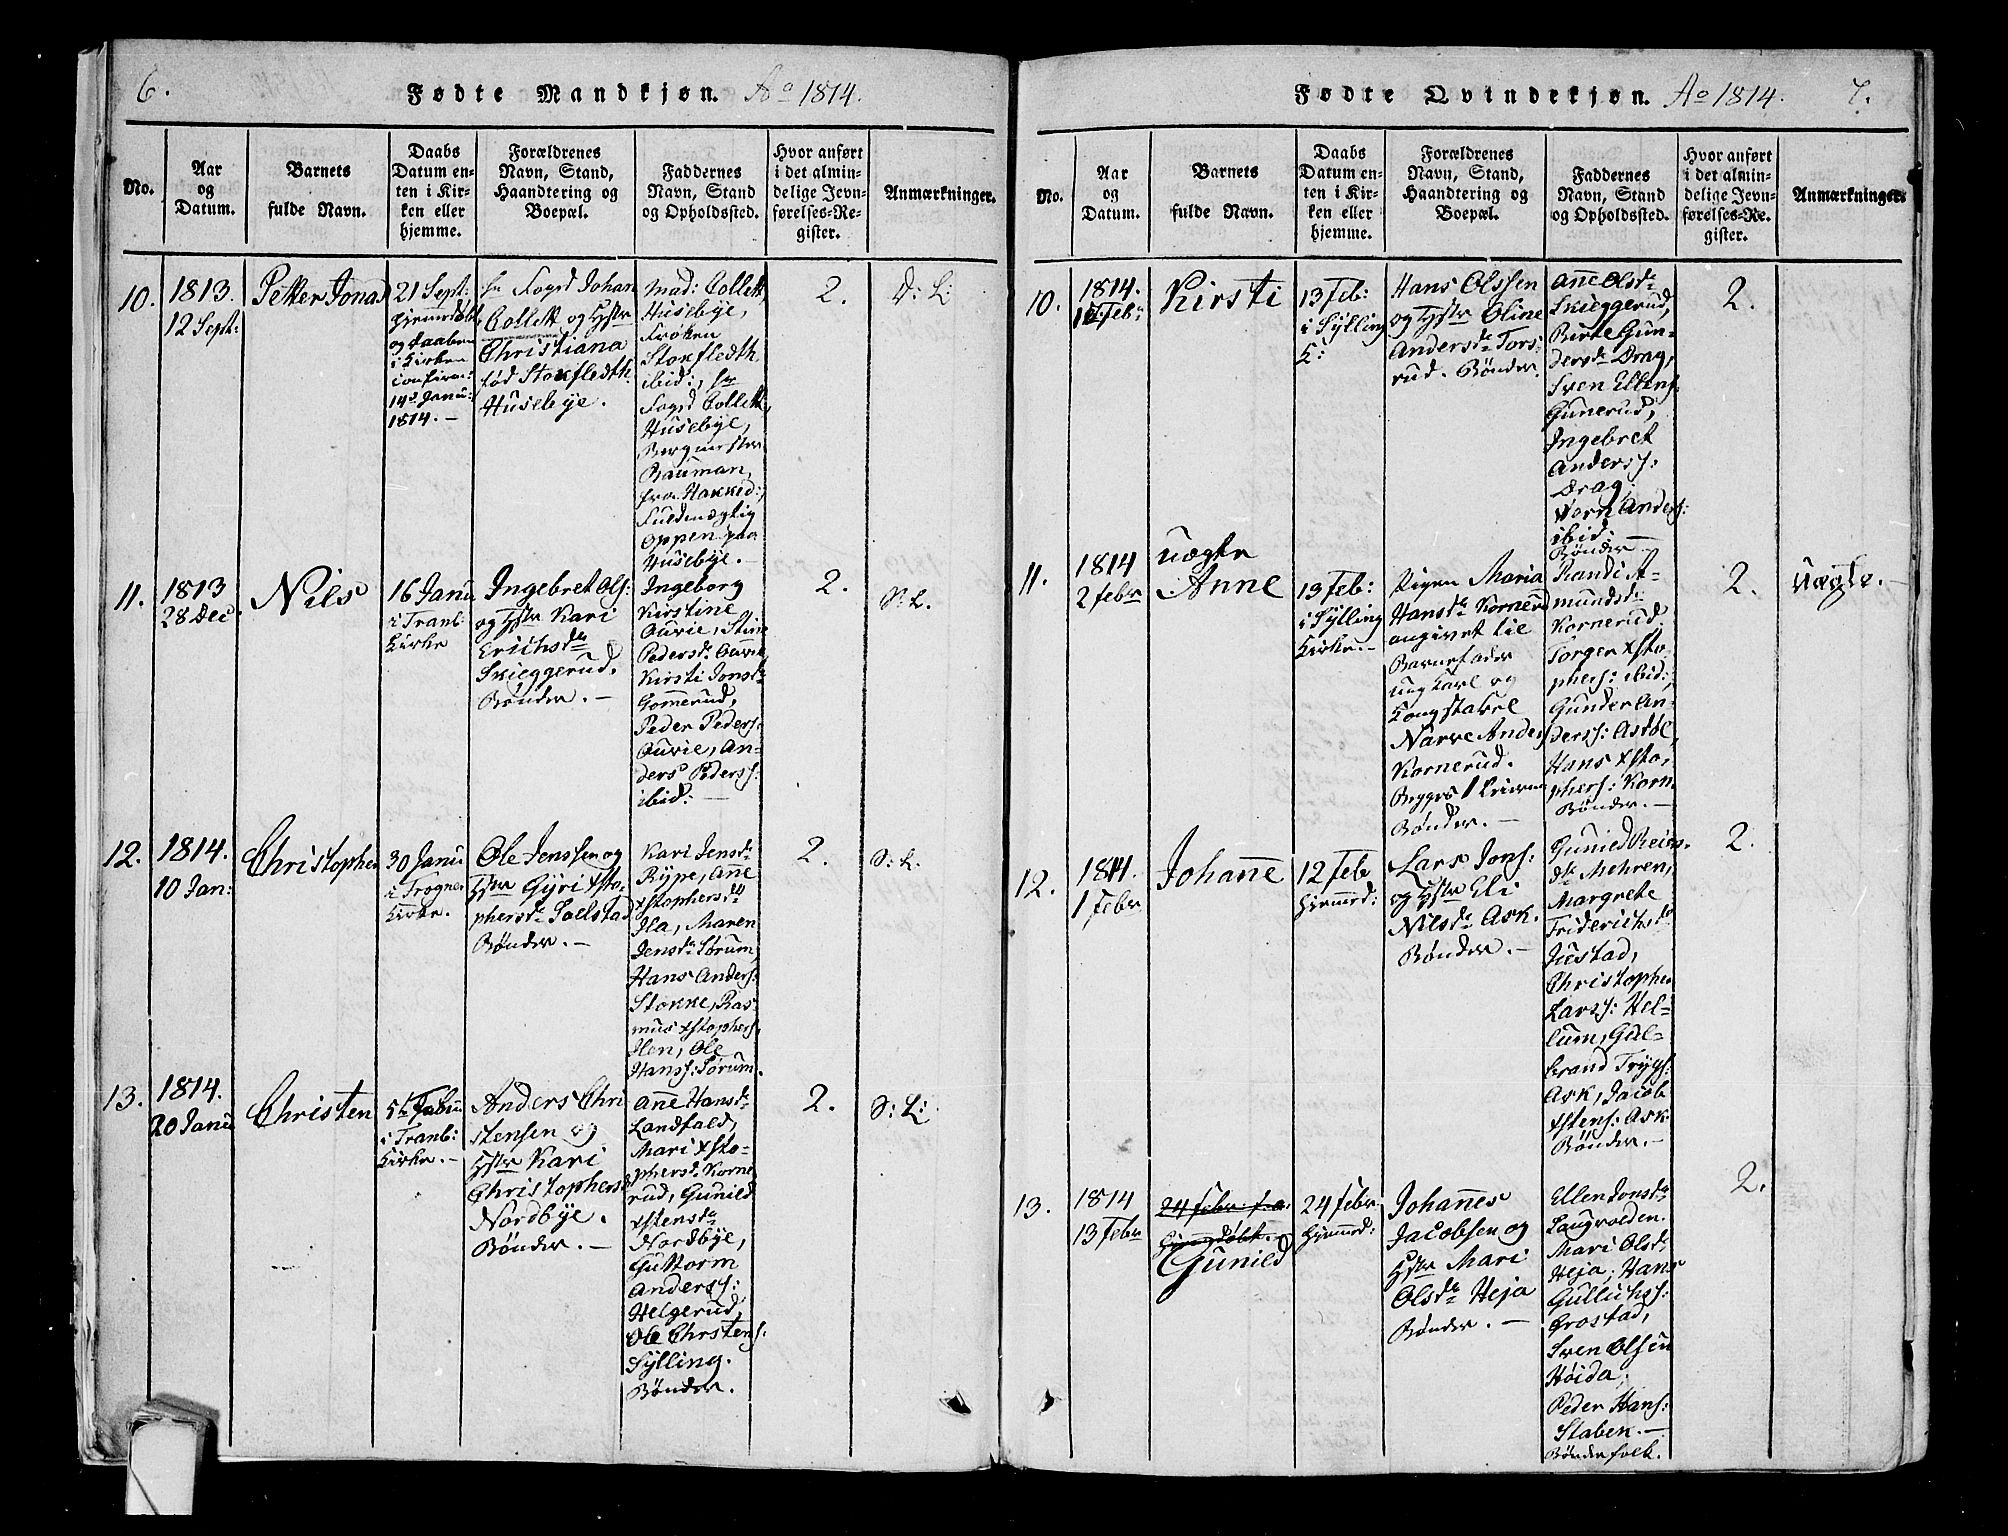 6.
Fødte Mandkjøn. Ao 1814.
No.
Aar
og
Datum.
Barnets
fulde Navn.
Daabs
Datum en-
ten i Kir-
ken eller
hjemme.
Forældrenes
Navn, Stand,
Haandtering og
Boepæl.
Faddernes
Navn, Stand
og Opholdssted.
Hvor anført
i det almin-
delige Jevn-
førelses-Re-
gister.
Anmærkninger.
10.
1813.
12 Sept:
Petter Jonas
21 Sept:
hjemedøbt
og daaben
i Kirken
confirm:
14d Janu:
1814. —
hr Fogd Johan
Collett og Hstr
Christiana
fød Stokfledth
Husebye.
Mad: Collett
Husebye,
Frøken
Stokfledth
ibid:, hr
Fogd Collett
Husebye,
Bergmester
Bauman
fra Hakked:,
Fuldmægtig
Oppen paa
Husebye. —
2.
D: L:
11.
1813
28 Dec.
Nils
16 Janu
i Tranb:
Kirke
Ingebret Ols:
og Hstr Kari
Erichsdr
Skieggerud.
Bønder. —
Ingeborg
Kirstine
Ourie, Stine
Pedersdr Ourie,
Kirsti Jonsdr
Gommerud,
Peder Peders:
Ourie, An-
ders Peders:
ibid: —
2.
S: L.
12.
1814.
10 Jan:
Christopher
30 Janu
i Trogner
Kirke.
Ole Jenssen og
Hstr Gyri Xsto-
phersdr Solstad
Bønder. —
Kari Jensdr
Rype, Ane
Xstophersdr
Ila, Maren
Jensdr Sørum,
Hans Anders:
Stokke, Ras-
mus Xstophers:
Ilen, Ole
Hanss: Sørum.
2.
S: L.
13.
1814.
20 Janu
Christen
5te Febru
i Tranb:
Kirke. —
Anders Chri
stensen og
Hstr Kari
Christophersd
Nordbye.
Bønder. —
Anne Hansdr
Landfald,
Mari Xsto-
phersdr Korne
rud, Gunild
Xstensdr
Nordbye,
Guttorm
Anderss:
Helgerud,
Ole Chrstens:
Sylling.
Bønder.
2.
S: L:
7.
Fødte Qvindekjøn. Ao 1814.
No.
Aar
og
Datum.
Barnets
fulde Navn.
Daabs
Datum en-
ten i Kir-
ken eller
hjemme.
Forældrenes
Navn, Stand,
Haandtering og
Boepæl.
Faddernes
Navn, Stand
og Opholdssted.
Hvor anført
i det almin-
delige Jevn-
førelses-Re-
gister.
Anmærkninger.
10.
1814.
Febr
Kirsti
13 Feb:
i Sylling
K:
Hans Olssen
og Hstr Oline
Andersdr Tors-
rud. Bønder.
Anne Olsdr
Skieggerud,
Birte Gun-
dersdr Drag,
Sven Ellens:
Gunerud,
Ingebret
Anderss:
Drag,
Anders:
ibid:
Bønder —
2.
11.
1814
2 Febr
Uægte
Anne
13 Feb:
i Sylling
Kirke. —
Pigen Maria
Hansdr Kornerud
angivet til
Barnefader
ung Karl og
Narve Anders
Kornerud.
Begges 1 Leierm
Bønder. —
Randi A-
mundsdr
Kornerud.
Torger Xsto-
phers: ibid:,
Gunder An-
derss: Asdøl,
Hans Xsto-
phers: Korn
Bønder. —
2.
Uægte. —
12.
1814.
1 Febr
Johanne
12 Feb
hjemed:
Lars Jons:
og Hstr Eli
Nilsdr Ask.
Bønder. —
Gunild Reiers-
dr Mehren,
Margrete
Friderichsdr
Justad,
Christopher
Larss: Hel-
lum, Gul-
brand Trygs:
Ask, Jacob
Xstens: Ask
Bønder. —
2.
13.
1814
13 Febr
24 Febr:
hjemedøbt.
Gunild
24 Febr
hjemed:
Johannes
Jacobsen og
Hstr Mari
Olsdr Heja
Bønder. —
Ellen Jonsdr
Laugvolden.
Mari Olsdr
Heja, Hans
Gullichss:
Grostad,
Sven Olsen
Høida,
Peder Hans:
Staben. —
Bønderfolk.
2.